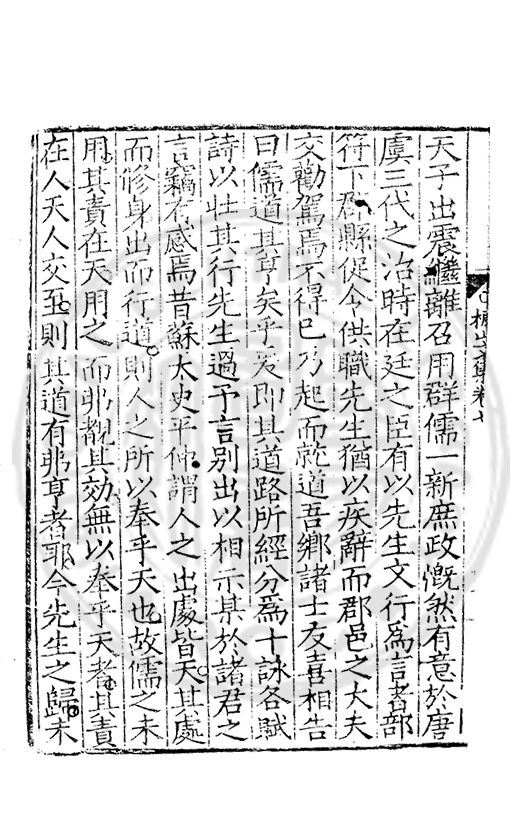 天子出震繼離召用群儒一新庶政慨然有意於唐
虞三代之治時在廷之臣有以先生文行為言者部
符下郡縣促令供職先生猶以疾辭而郡邑之大夫
交勸駕焉不得已乃起而就道吾鄉諸士友喜相告
曰儒道其亨矣乎爰即其道路所經分為十詠各賦
詩以壯其行先生過予言別出以相示某於諸君之
言竊有感焉昔蘇太史平仲謂人之出處皆天其處
而修身出而行道則人之所以奉乎天也故儒之未
用其責在天用之而弗覩其効無以奉乎天者其責
在人天人交至則其道有弗亨者耶今先生之歸未
文集卷七